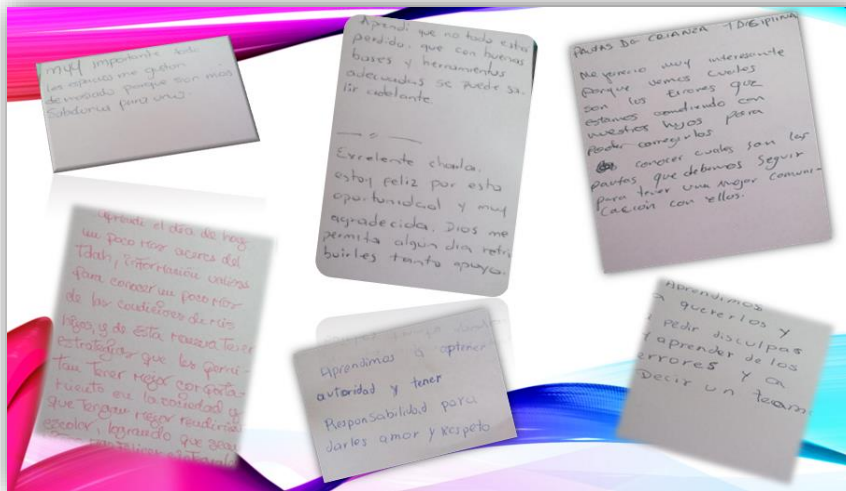 muy importante todo
los espacios me gustan
demasiado porque son mas
Sabiduria para uno.
Aprendi que no todo esta
perdido, que con buenas
bases y herramientas
adecuadas se puede sa-
lir adelante
Excelente charla,
estoy feliz por esta
oportunidad y muy
agradecida. Dios me
permita algun dia retri
buirles tanto apoyo.
PAUTAS DE CRIANZA Y DISIPLINA
Me parecio muy interesante
porque vemos cuales
son los errores que
estamos cometiendo con
nuestros hijos para
poder corregirlos
conocer cuales son las
pautas que debemos seguir
para tener una mejor comuni-
cación con ellos.
aprendi el dia de hoy
un poco mas acerca del
Tdah, información valiosa
para conocer un poco mas
de las condiciones de mis
hijos, y de esta manera tener
estrategias que les permi-
tan tener mejor comporta-
miento en la sociedad y
que tengan mejor rendimien
escolar, logrando que sean
Aprendimos a optener
autoridad y tener
Responsabilidad para
darles amor y Respeto
Aprendimos
a quererlos y
a pedir disculpas
y aprender de los
errores y a
Decir un